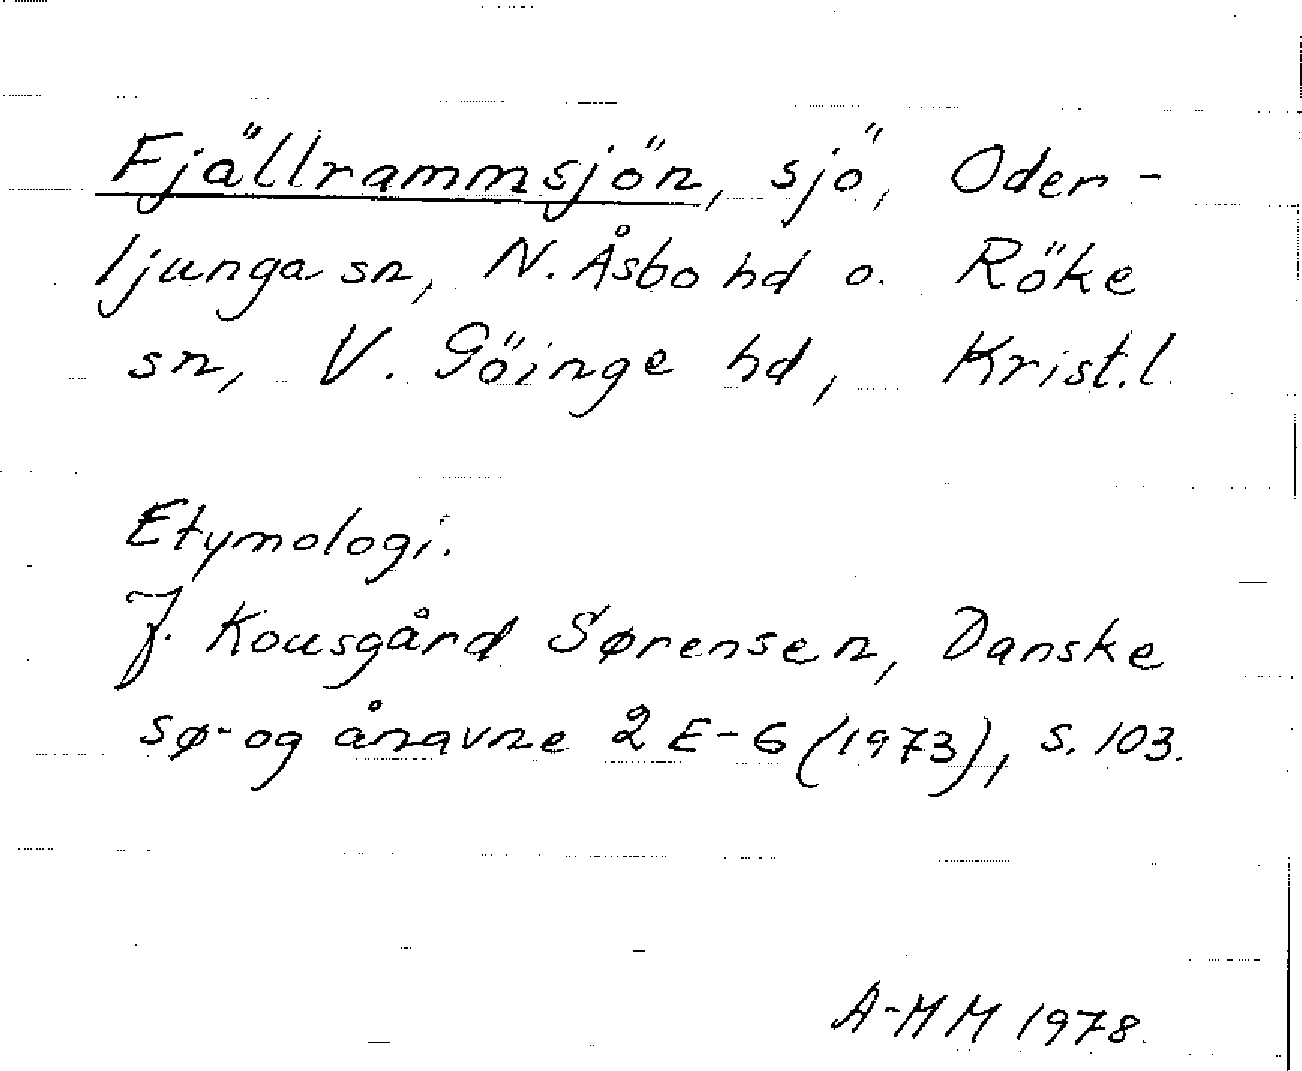 Fjällrammsjön, sjö, Oder-
ljunga sn, N. Åsbo hd o. Röke
sn, V. Göinge hd, Krist.l.
Etymologi.
J. Kousgård Sørensen, Danske
sø- og ånavne 2 E-G (1973), s. 103.
A-MM 1978.